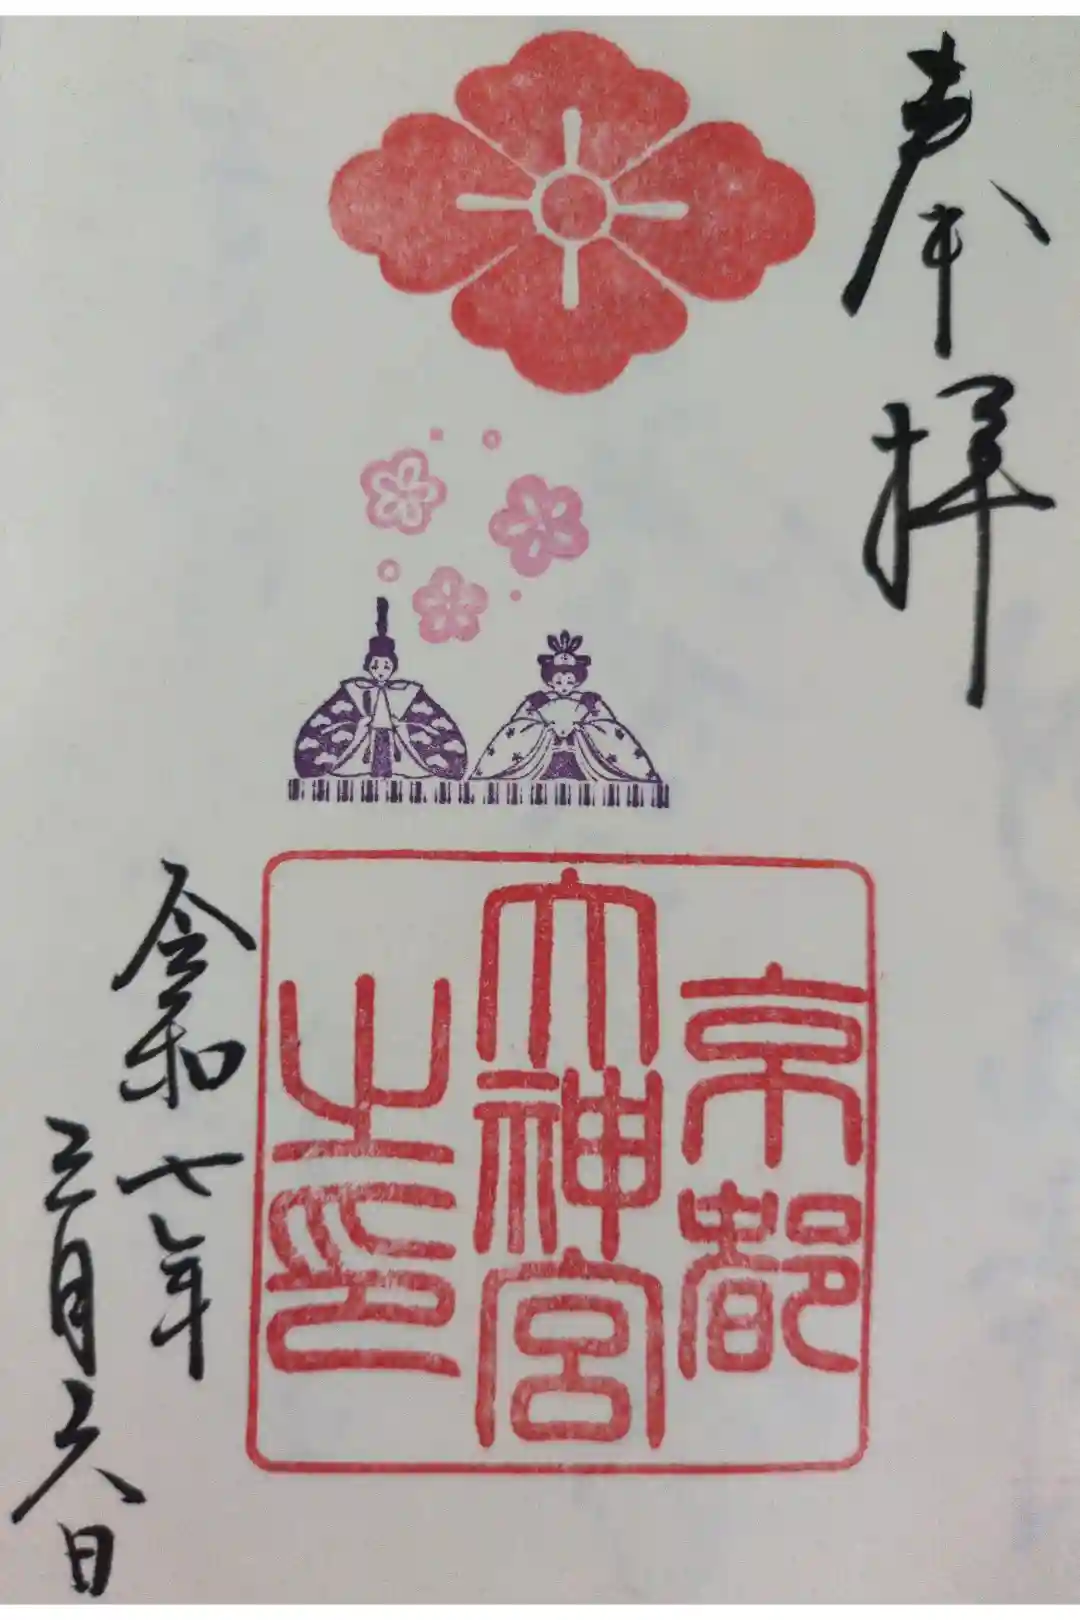 奉拝
京都
大神宮
之印
令和七年
三月六日